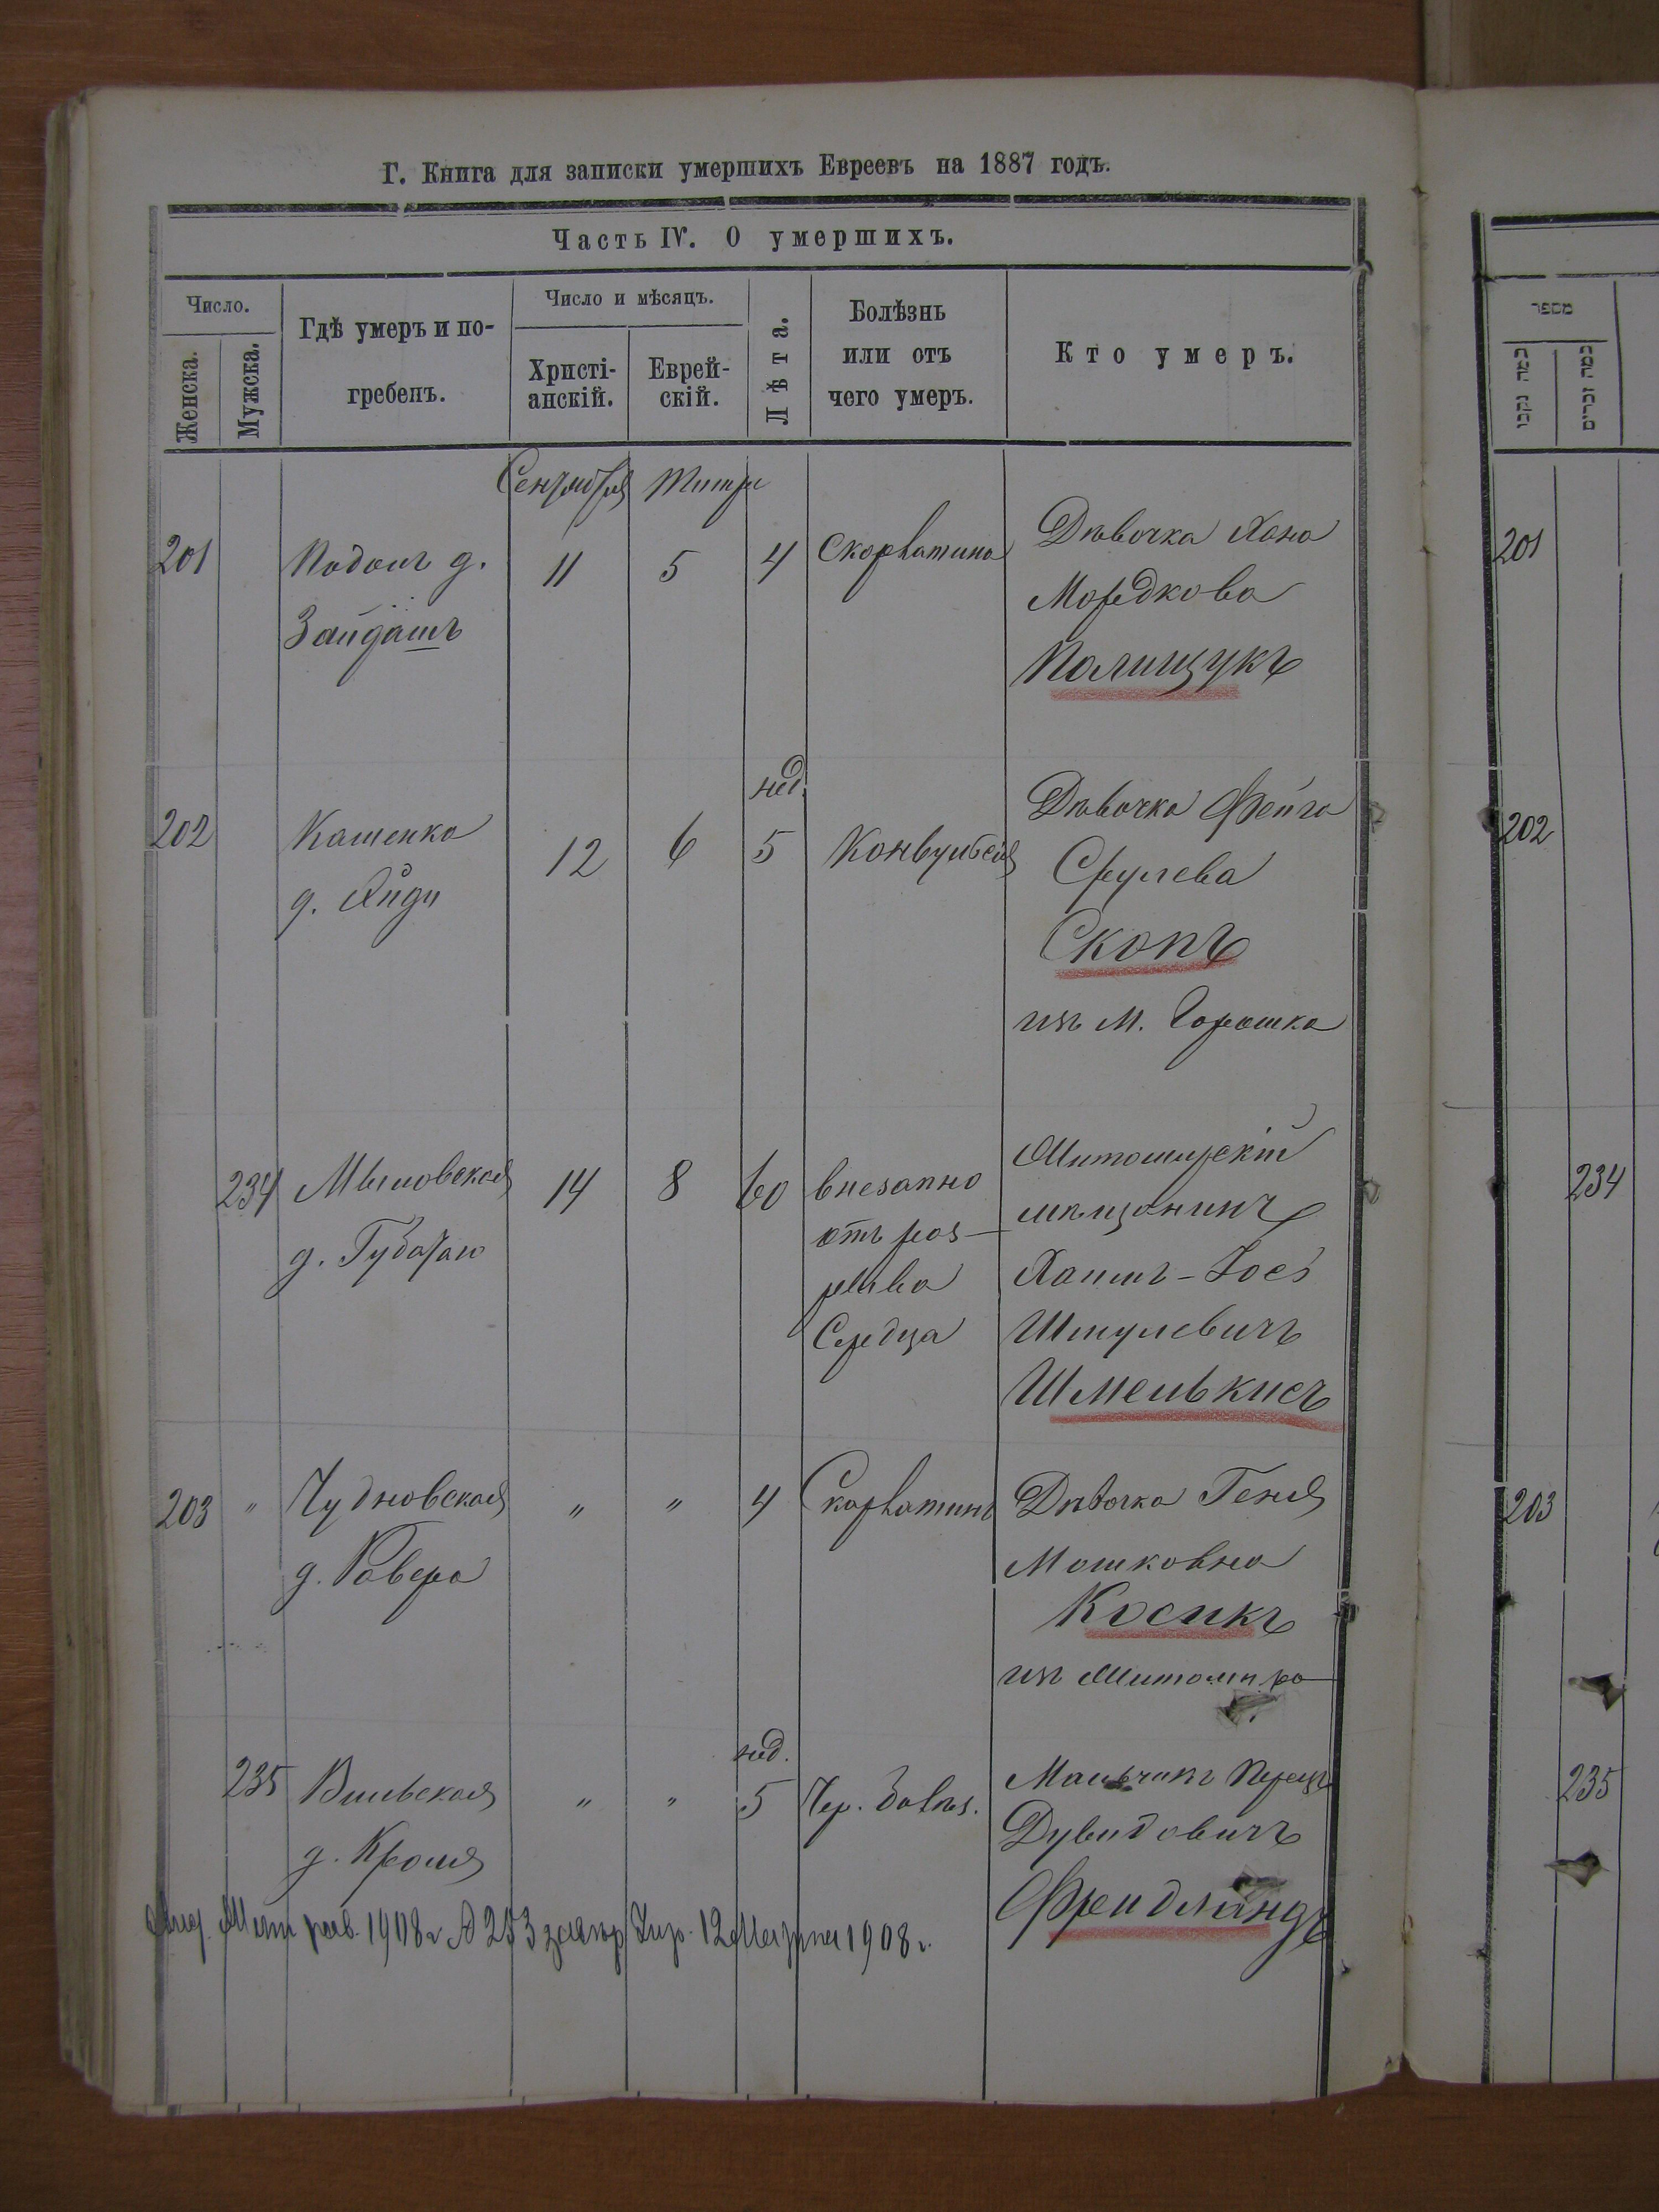 Г. Книга для записки умершихъ Евреевъ на 1887 годъ.
Часть IV. О умершихъ.
Число.
Женска.
Мужска.
Гдѣ умеръ и по-
гребенъ.
Число и мѣсяцъ.
Христі-
анскій.
Еврей-
скій.
Лѣта.
Болѣзнь
или отъ
чего умеръ.
Кто умеръ.
מספר
כמה נקבו
כמה זכרים
Сентября Тишри
201
Подолъ д.
Зайдашъ
11
5
4
Скорлатина
Дѣвочка Хана
Мордкова
Полищукъ
201
202
Кашенка
д.
12
6
нед.
5
Конвульсія
Дѣвочка Фейга
Срулева
Скопъ
изъ м. Горошка
202
234
д.
14
8
60
внезапно
отъ роз-
рыва
Сердца
Житомирскій
мѣщанинъ
Хаимъ-Іосъ
Шмулевичъ
Шмелькисъ
234
203
"
Чудновская
д. Ровера
"
"
4
Скарлатинъ
Дѣвочка Геня
Мошковна
Косикъ
изъ Житомира
203
235
Вильская
д. Кроля
"
"
нед.
5
Чер. болѣз.
Мальчикъ Перецъ
Дувидовичъ
Фрейдландъ
235
1908 г № 253 12 Марта 1908 г.